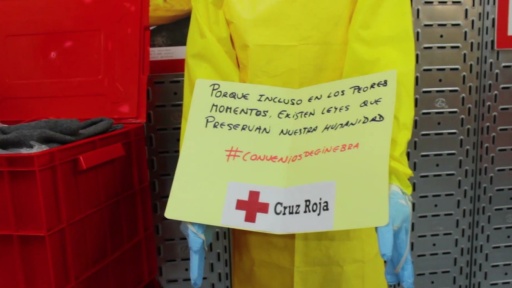 PORQUE INCLUSO EN LOS PEORES
MOMENTOS, EXISTEN LEYES QUE
PRESERVAN NUESTRA HUMANIDAD
#CONVENIOSDEGINEBRA
Cruz Roja